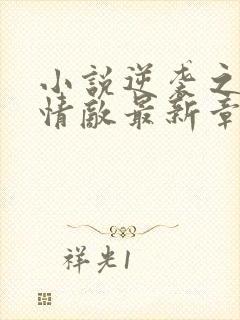 小説逆袭之
情敵最新章
祥光1